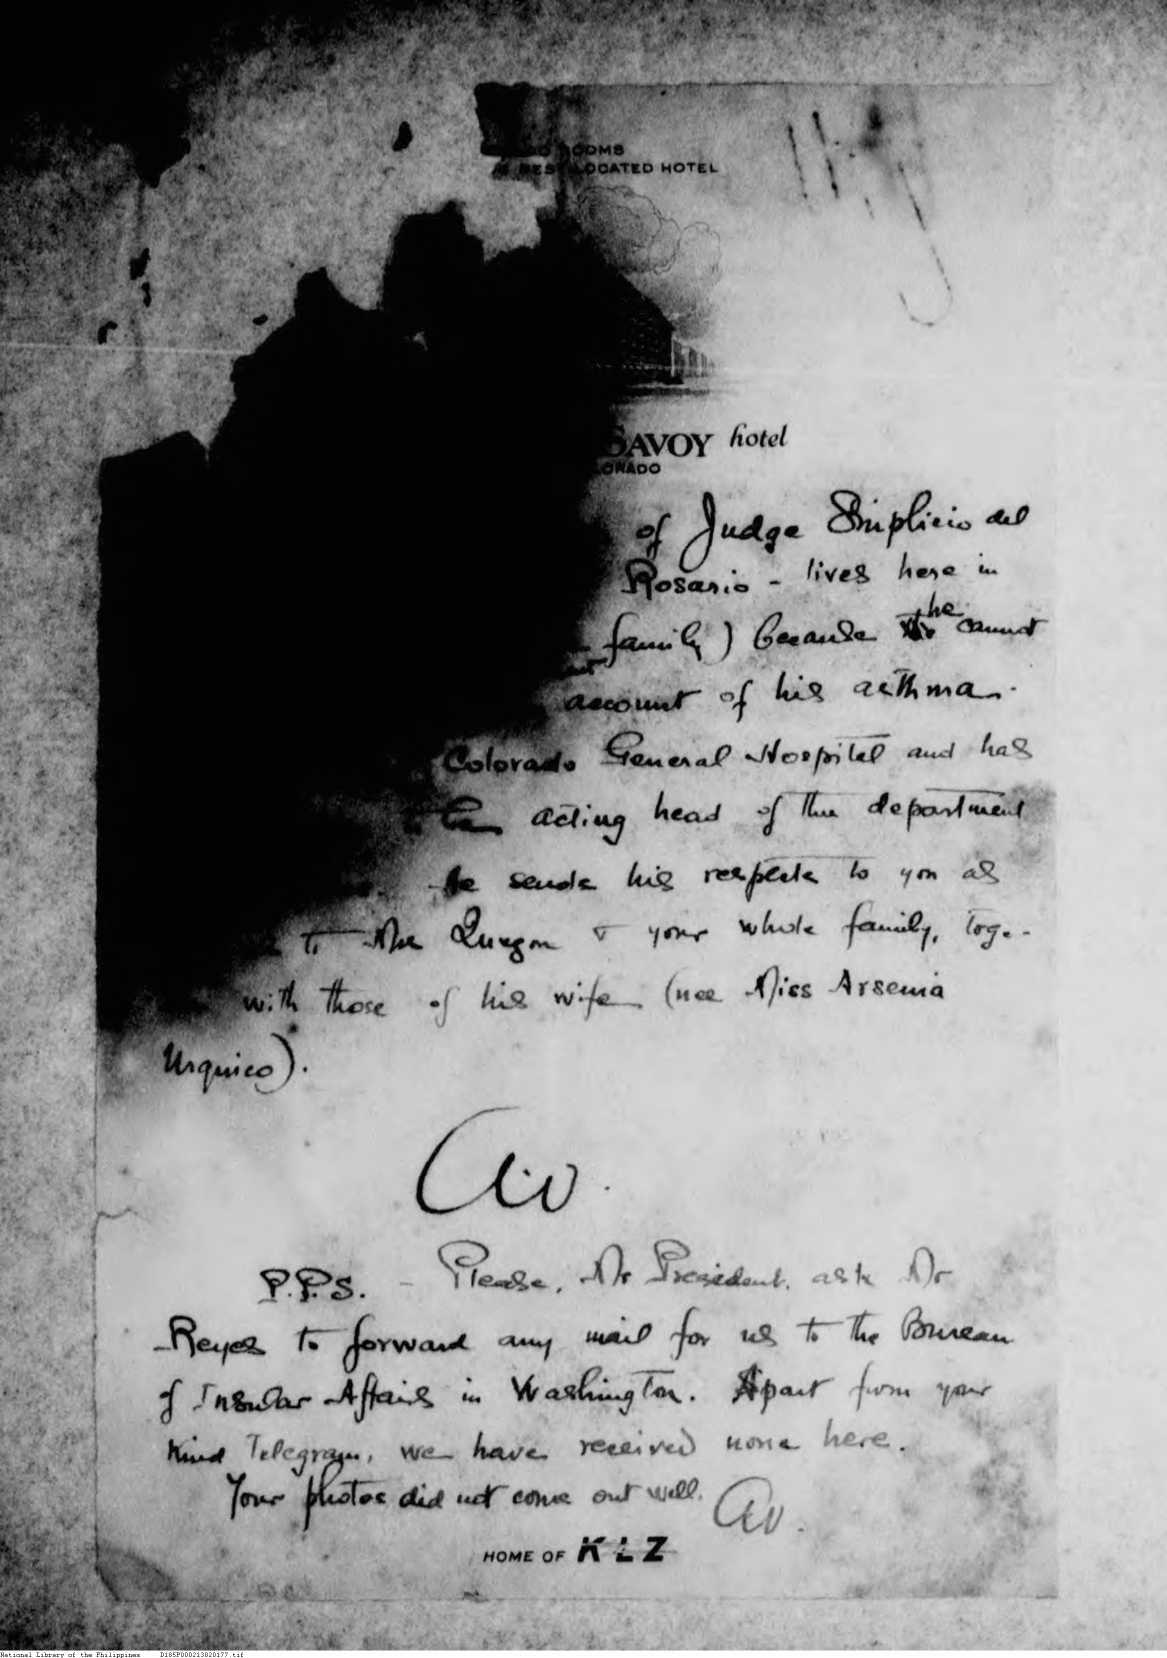 ROOMS
BEST LOCATED HOTEL
SAVOY hotel
of Judge Simplicio del
Rosario - lives here in
family) because he cannot
account of his asthma.
Colorado General Hospital and has
acting head of the department
He sends his respects to you as
to Mrs Quezon & your whole family, toge-
with those of his wife (nee Miss Arsenia
Urquico).
P.P.S. - Please, Mr President, ask Mr
Reyes to forward any mail for us to the Bureau
of Insular Affairs in Washington. Apart from your
kind Telegram, we have received none here.
Your photos did not come out well.
HOME OF KLZ
National Library of the Philippines D185P000213020177.tif